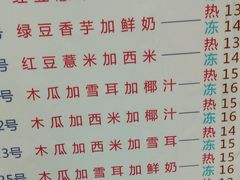 热 13
绿豆香芋加鲜奶 冻 14
热 13
号 红豆薏米加西米 冻 14
热 14
号 木瓜加雪耳加椰汁 冻 15
热 14
2号 木瓜加西米加椰汁 冻 15
热 14
3号 木瓜加西米加雪耳 冻 15
热 15
5号 木瓜加雪耳加鲜奶 冻 16